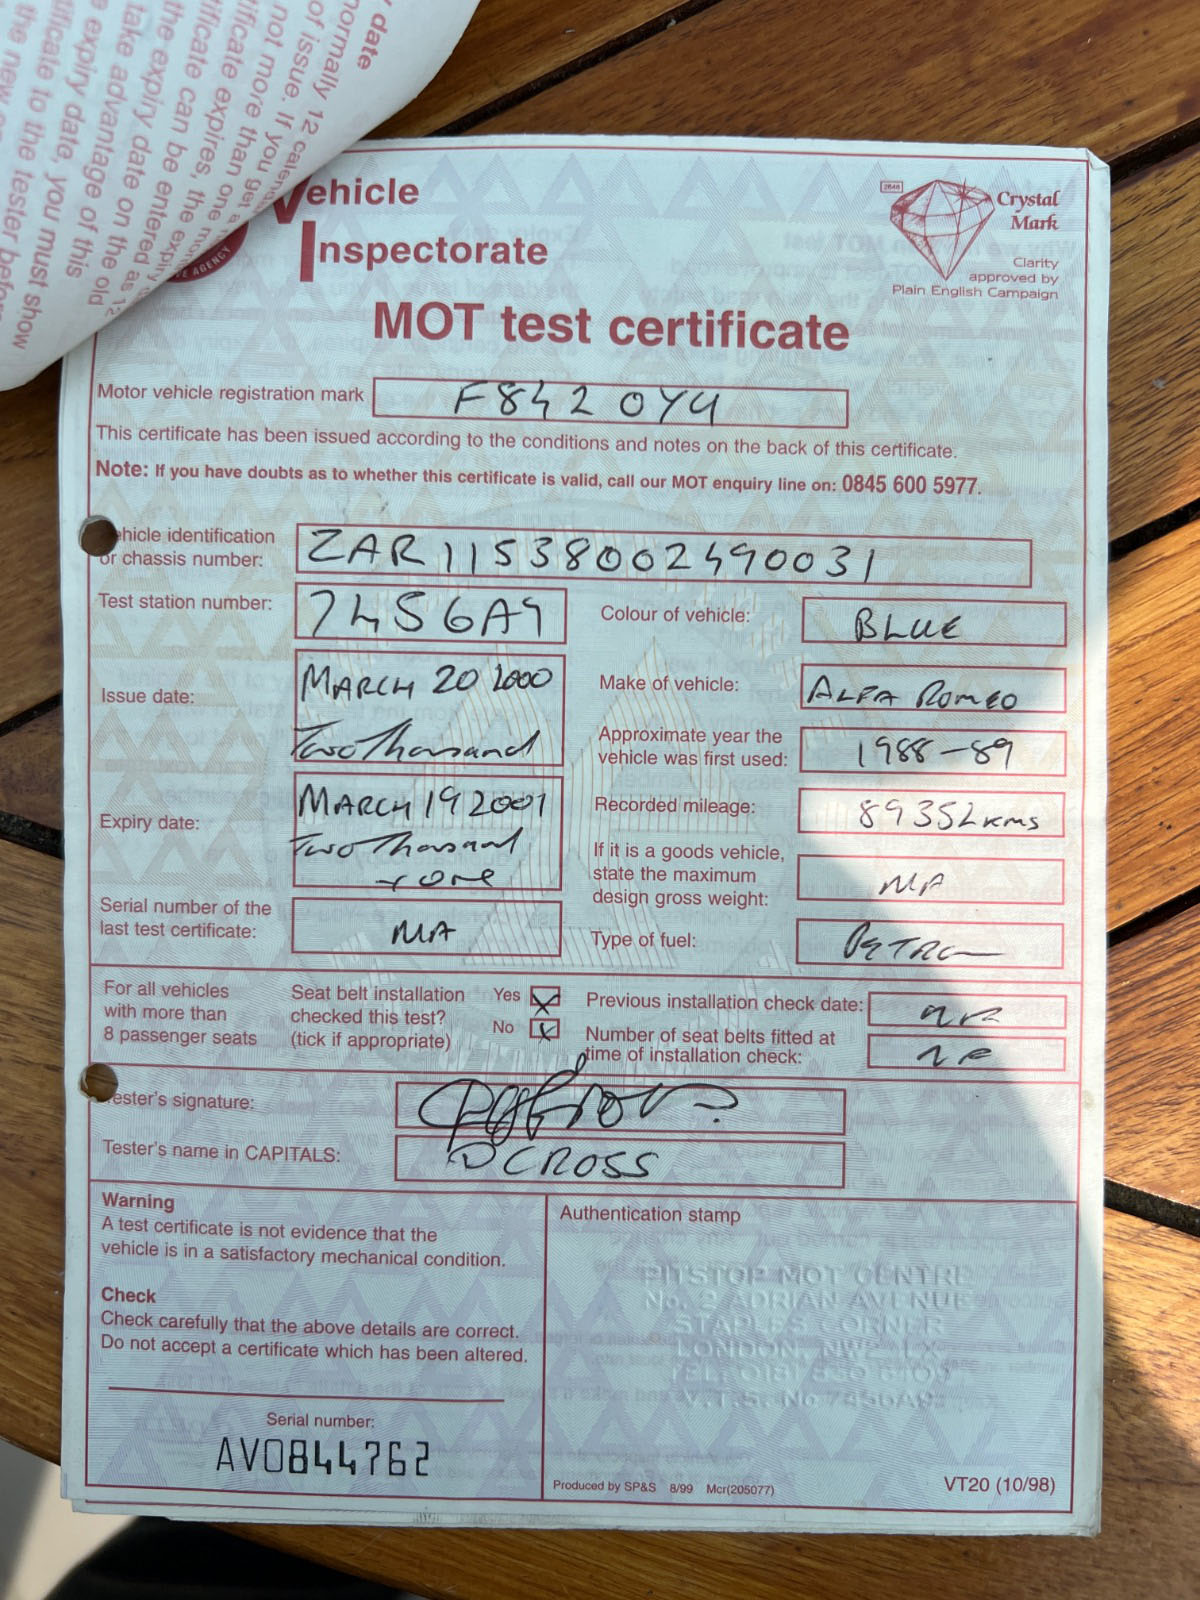 y date
normally 12 calen
of issue. If you get a
not more than one mon
rtificate expires, the expiry
ificate can be entered as 12
the expiry date on the old
take advantage of this
e expiry date, you must show
ificate to the tester before
the new
Vehicle
Inspectorate
E AGENCY
2648
Crystal
Mark
Clarity
approved by
Plain English Campaign
MOT test certificate
Motor vehicle registration mark F842 OYU
This certificate has been issued according to the conditions and notes on the back of this certificate.
Note: If you have doubts as to whether this certificate is valid, call our MOT enquiry line on: 0845 600 5977.
ehicle identification
or chassis number: ZAR11538002490031
Test station number: 7456A9
Colour of vehicle: BLUE
Issue date: MARCH 20 2000
Two Thousand
Make of vehicle: ALFA ROMEO
Approximate year the
vehicle was first used: 1988-89
Expiry date: MARCH 19 2001
Two Thousand
+ one
Recorded mileage: 89352 kms
If it is a goods vehicle,
state the maximum
design gross weight: NA
Serial number of the
last test certificate: NA
Type of fuel: PETROL
For all vehicles
with more than
8 passenger seats
Seat belt installation Yes
checked this test?
(tick if appropriate) No
Previous installation check date: NA
Number of seat belts fitted at
time of installation check: NA
ester's signature:
Tester's name in CAPITALS: D CROSS
Warning
A test certificate is not evidence that the
vehicle is in a satisfactory mechanical condition.
Check
Check carefully that the above details are correct.
Do not accept a certificate which has been altered.
Serial number:
AV0844762
Authentication stamp
PITSTOP MOT CENTRE
No. 2 ADRIAN AVENUE
STAPLES CORNER
LONDON, NW2 1LX
TEL: 0181
V.T.S. No 7456A9
Produced by SP&S 8/99 Mcr(205077)
VT20 (10/98)